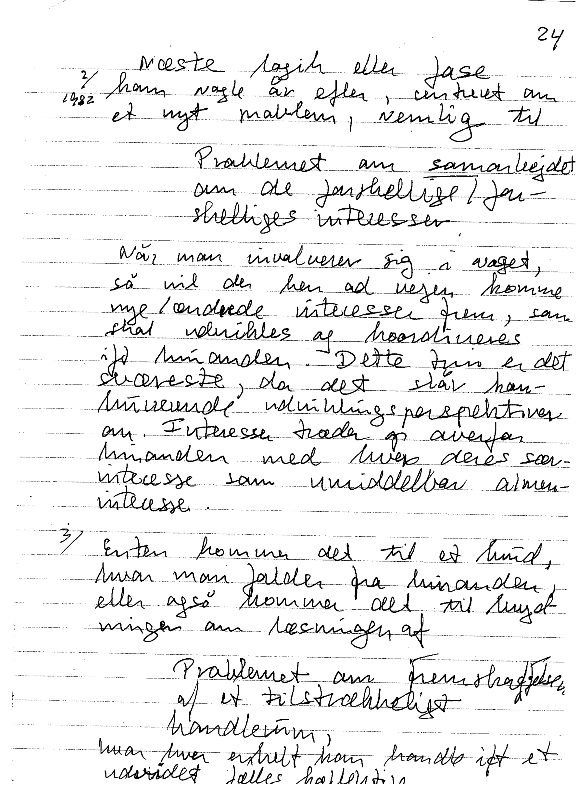 24
Næste logik eller fase
2/ kom nogle år efter, centreret om
1982 et nyt problem, nemlig til
Problemet om samarbejdet
om de forskellige/for-
skelliges interesser
Når man involverer sig i noget,
så vil der hen ad vejen komme
nye/ændrede interesser frem, som
skal udvikles og koordineres
ift hinanden. Dette trin er det
sværeste, da det slår kon-
kurrerende udviklingsperspektiver
an. Interesser træder op overfor
hinanden med hver deres sær-
interesse som umiddelbar almen-
interesse.
3/ Enten kommer det til et brud,
hvor man falder fra hinanden,
eller også kommer det til
om løsningen af
Problemet om fremskaffelsen
af et tilstrækkeligt
handlerum,
hvor hver enkelt kan handle ift et
udvidet fælles